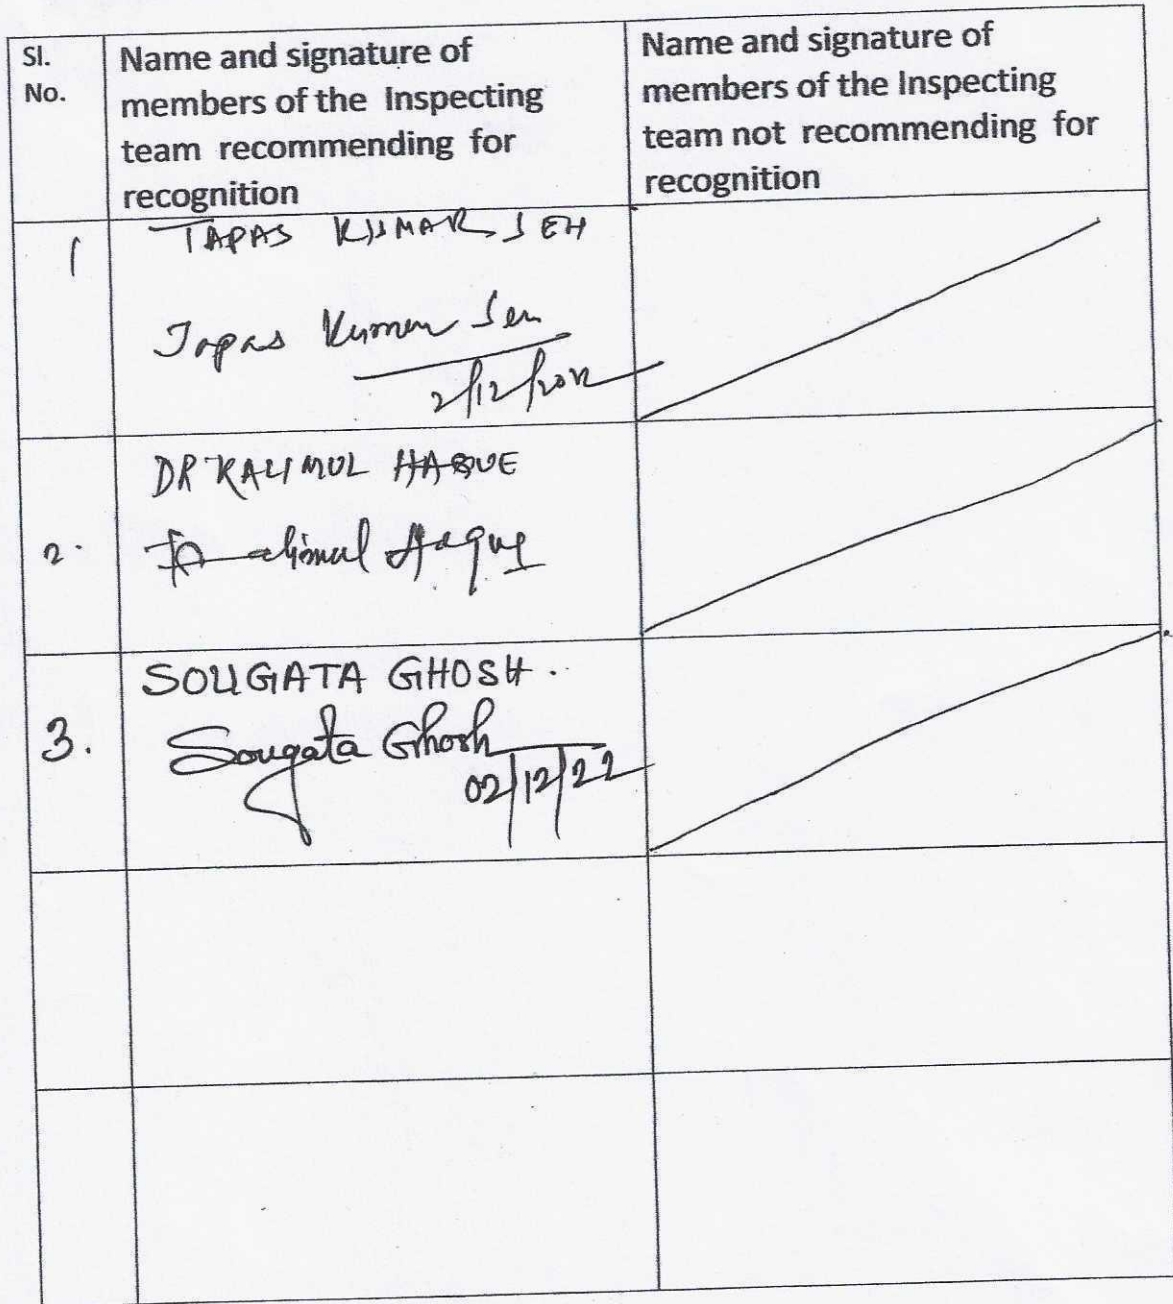 Sl.
No.
Name and signature of
members of the Inspecting
team recommending for
recognition
Name and signature of
members of the Inspecting
team not recommending for
recognition
1
TAPAS KUMAR SEN
Tapas Kumar Sen
2/12/2022
2.
DR KALIMUL HAQUE
Kalimul Haque
3.
SOUGATA GHOSH.
Sougata Ghosh
02/12/22